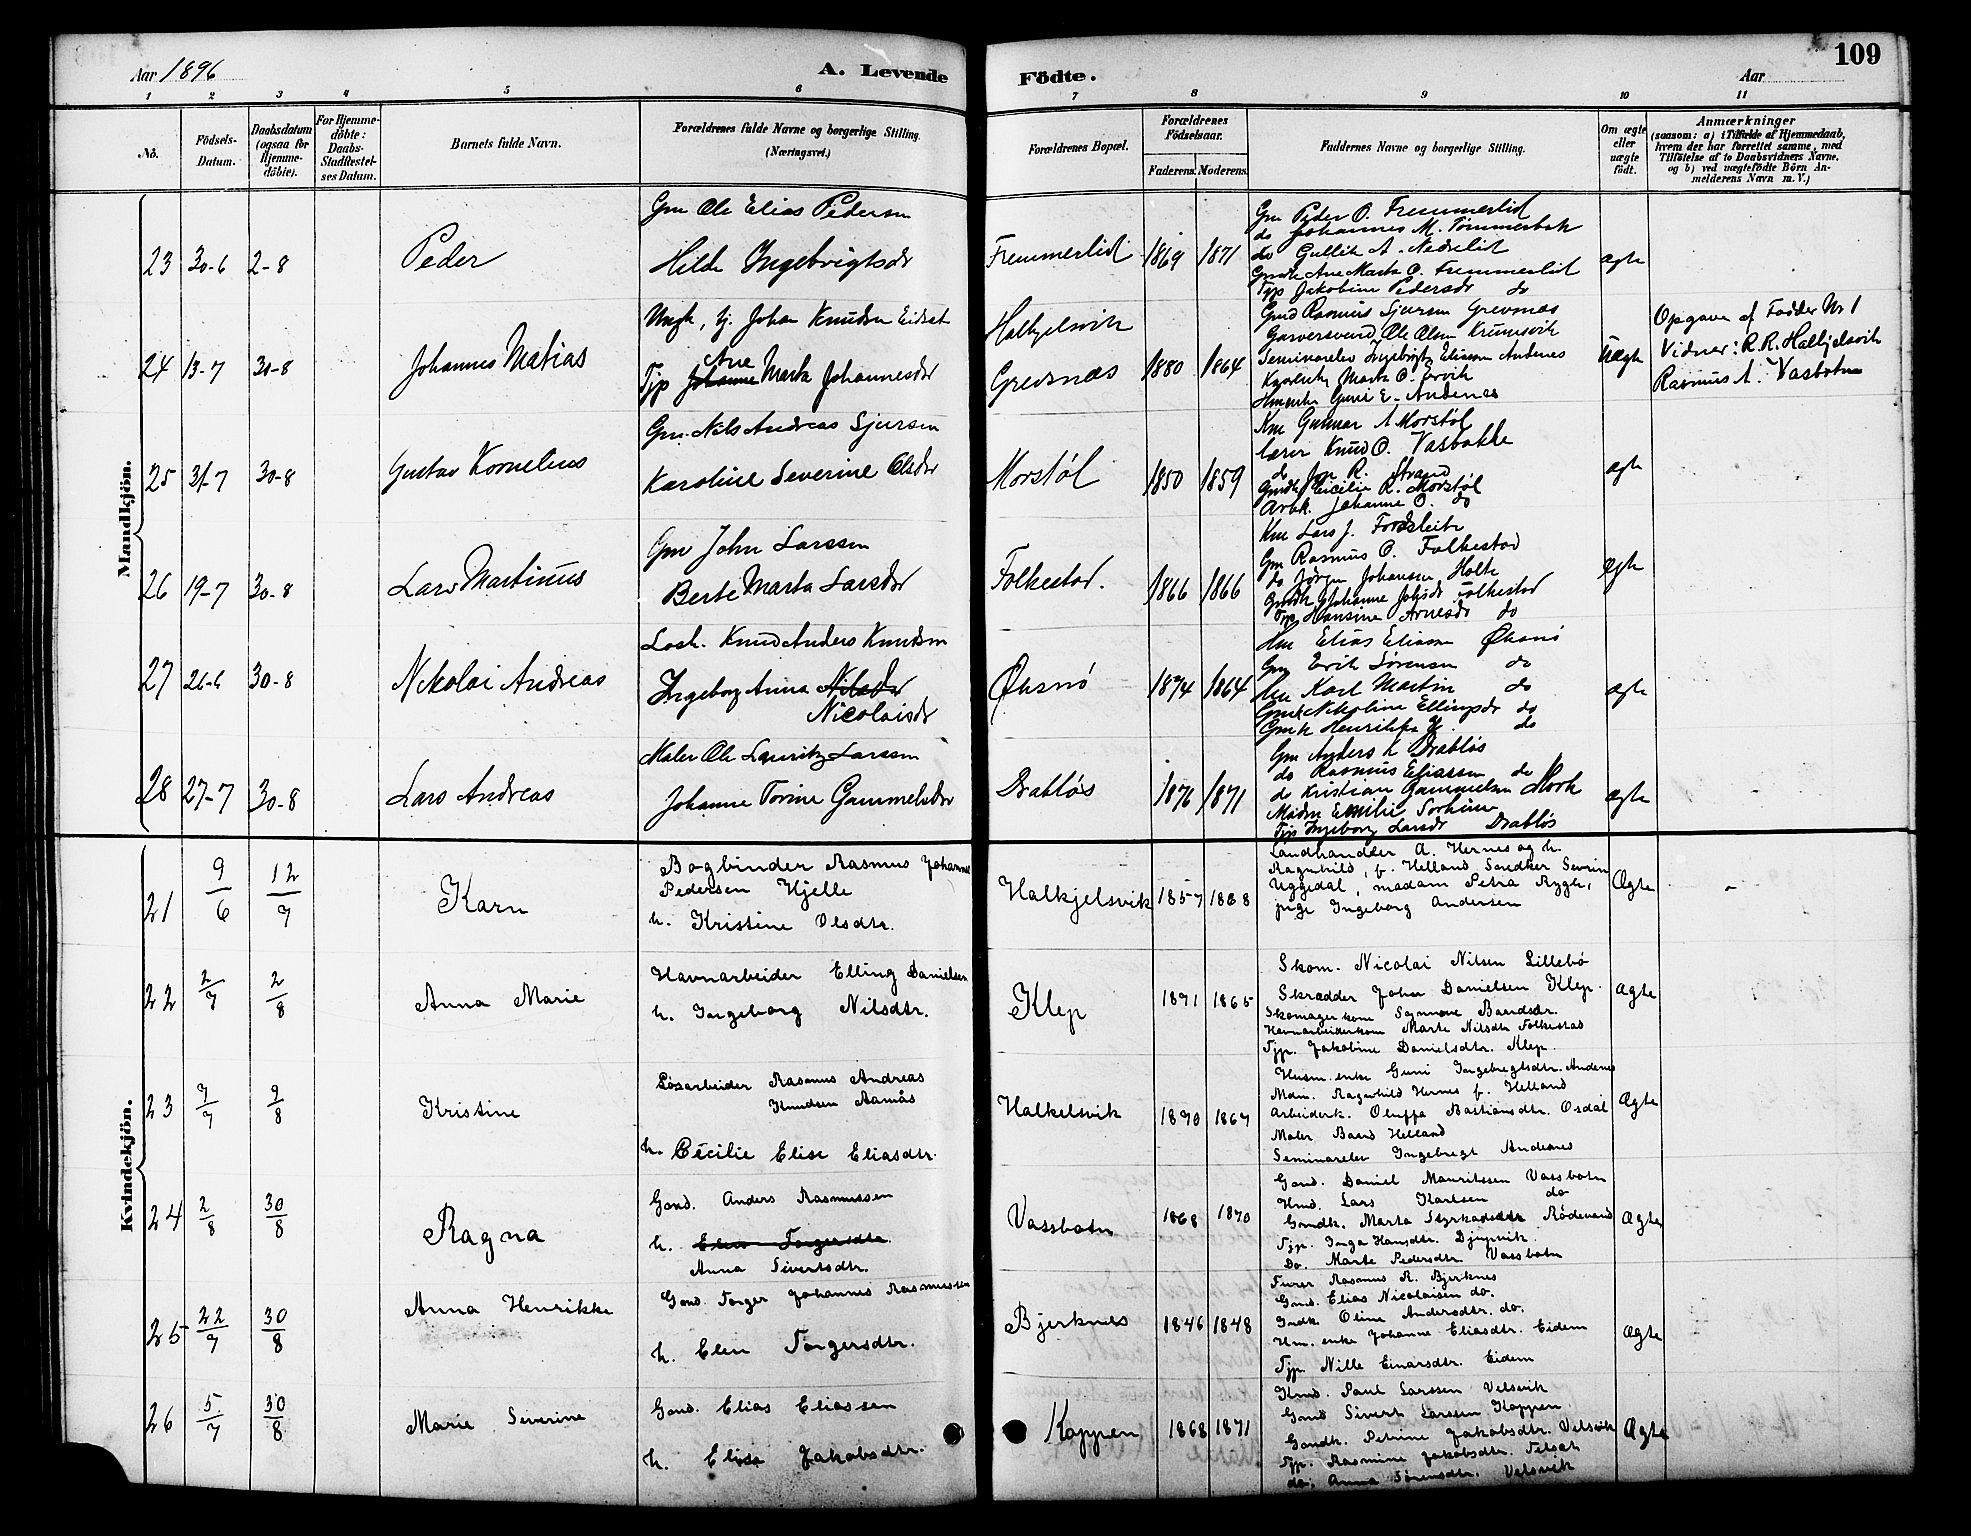 Aar 1896
A. Levende
Födte.
Aar
109
1 2 3 4 5 6 7 8 9 10 11
No.
Födsels-
Datum.
Daabsdatum
(ogsaa for
Hjemme-
döbte).
For Hjemme-
döbte:
Daabs-
Stadfæstel-
ses Datum.
Barnets fulde Navn.
Forældrenes fulde Navne og borgerlige Stilling.
(Næringsvei.)
Forældrenes Bopæl.
Forældrenes
Födselsaar.
Faderens. Moderens.
Faddernes Navne og borgerlige Stilling.
Om ægte
eller
uægte
födt.
Anmærkninger
(saasom: a) i Tilfælde af Hjemmedaab,
hvem der har forrettet samme, med
Tilföielse af to Daabsvidners Navne,
og b) ved uægtefödte Börn An-
melderens Navn m. V.)
Mandkjön.
23 30-6 2-8
Peder
Gm Ole Elias Pedersen
Hilde Ingebrigtsdr
Fremmerlid 1869 1871
Gm Peder O. Fremmerlid
do Johannes M. Tømmerbak
do Gullik A. Nedrelid
Gmdk Ane Marta O. Fremmerlid
Tjp Jakobine Pedersdr do
ægte
24 13-7 30-8
Johannes Matias
Ungk, tj. Johan Knudsen Eidset
Ane
Tjp Johanne Marta Johannesdr
Halkjelsvik
Grevsnæs 1880 1864
Gmd Rasmus Sjursen Grevsnæs
Garversvend Ole Olsen Krumsvik
Seminarelev Ingebrigt Eliassen Andenes
Marta O. Ervik
Gurie E. Andenes
Uægte
Opgave af Fadder Nr 1
Vidner: R. R. Halkjelsvik
Rasmus A. Vasbotn
25 31-7 30-8
Gustav Kornelius
Gm. Nils Andreas Sjursen
Karoline Severine Olsdr
Morstøl 1850 1859
Km Gunnar A Morstøl
Lærer Knud O. Vasbakke
do Jon R. Strand
Gmdk Cicilie R. Morstøl
Arbk. Johanne O. do
ægte
26 19-7 30-8
Lars Martinus
Gm John Larssen
Berte Marta Larsdr
Folkestad. 1866 1866
Km Lars J. Fordsleite
Gm Rasmus O. Folkestad
do Jørgen Johansen Holte
Gmdk Johanne Johsdr Folkestad
Tjp Hansine Arnesdr do
Ægte
27 26-6 30-8
Nikolai Andreas
Losh. Knud Anders Knudsen
Ingeborg Anna Nilsdr
Nicolaisdr
Øksnö 1874 1864
Hm Elias Eliassen Øksnö
Gm Erik Sørensen do
Hm Karl Martin do
Gmk Nikoline Ellingsdr do
Gmk Henrikke H. do
ægte
28 27-7 30-8
Lars Andreas
Maler Ole Lauritz Larssen
Johanne Torine Gammelsdr
Drabløs 1876 1871
Gm Anders K Drabløs
do Rasmus Eliassen do
do Kristian Gammelsen Mork
Madm Emilie Sorheim
Tjp Ingeborg Larsdr Drabløs
ægte
Kvindekjön.
21 9/6 12/7
Karn
Bogbinder Rasmus Johannes
Pedersen Hjelle
h. Kristine Olsdtr.
Halkjelsvik 1857 1868
Landhandler A. Hernes og h.
Ragnhild, f. Helland Snedker Severin
Uggedal, madam Petra Rygh,
pige Ingeborg Andersen
Ægte
22 2/7 2/8
Anna Marie
Havnarbeider Elling Danielsen
h. Ingeborg Nilsdtr.
Klep 1871 1865
Skom. Nicolai Nilsen Lillebö
Skrædder Johan Danielsen Klep.
Skomagerkone Synnøve Baardsdr.
Havnarbeiderkone Marte Nilsdtr Folkestad
Tjp. Jakobine Danielsdtr. Klep.
Ægte
23 7/7 9/8
Kristine
Løsarbeider Rasmus Andreas
Knudsen Aamås
h. Cecilie Elise Eliasdtr.
Halkelsvik 1870 1867
Husm. enke Guni Ingebregtsdtr. Andenes
Mdm. Ragnhild Hernes f. Helland
Arbeiderk. Oluffa Bastiansdtr. Osdal
Maler Baard Helland
Seminarelev Ingebregt Andenes
Ægte
24 2/8 30/8
Ragna
Gmd. Anders Rasmussen
h. Elen Torgersdtr.
Anna Sivertsdtr.
Vassbotn 1868 1870
Gmd. Daniel Mauritssen Vassbotn
Hmd. Lars Karlsen do
Gmdk. Marta Styrkadsdtr Rödesand
Tjp. Inga Hansdtr. Djupvik.
Do. Marte Pedersdtr Vassbotn
Ægte
25 22/7 30/8
Anna Henrikke
Gmd. Torger Johannes Rasmussen
h. Elen Torgersdtr.
Bjerknes 1846 1848
Furer Rasmus R. Bjerknes
Gmd. Elias Nicolaisen do.
Gmdk. Oline Andersdtr. do.
Hm. enke Johanne Eliasdtr. Eidem
Tjp. Nille Einarsdtr. Eidem
Ægte
26 5/7 30/8
Marie Severine
Gmd. Elias Eliassen
h. Elise Jakobsdtr.
Koppen 1868 1871
Kmd. Paul Larssen Velsvik
Gmd Sivert Larssen Koppen
Gmdk. Petrine Jakobsdtr. Velsvik
Tjp. Rasmine Jakobsdtr. Velsvik
do. Anna Sörensdtr. Velsvik
Ægte